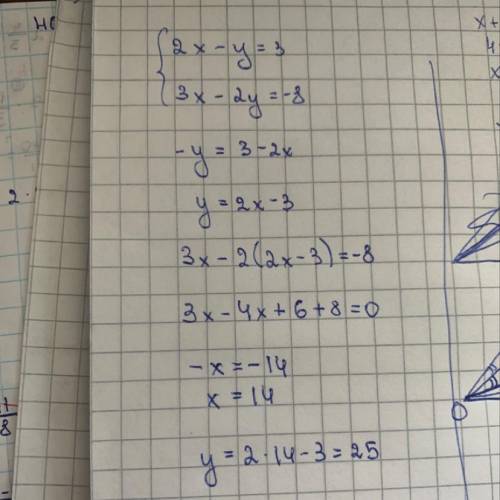 2x - y = 3
3x - 2y = -8
-y = 3 - 2x
y = 2x - 3
3x - 2(2x - 3) = -8
3x - 4x + 6 + 8 = 0
-x = -14
x = 14
y = 2·14 - 3 = 25
2.
8
x+
4
x
O